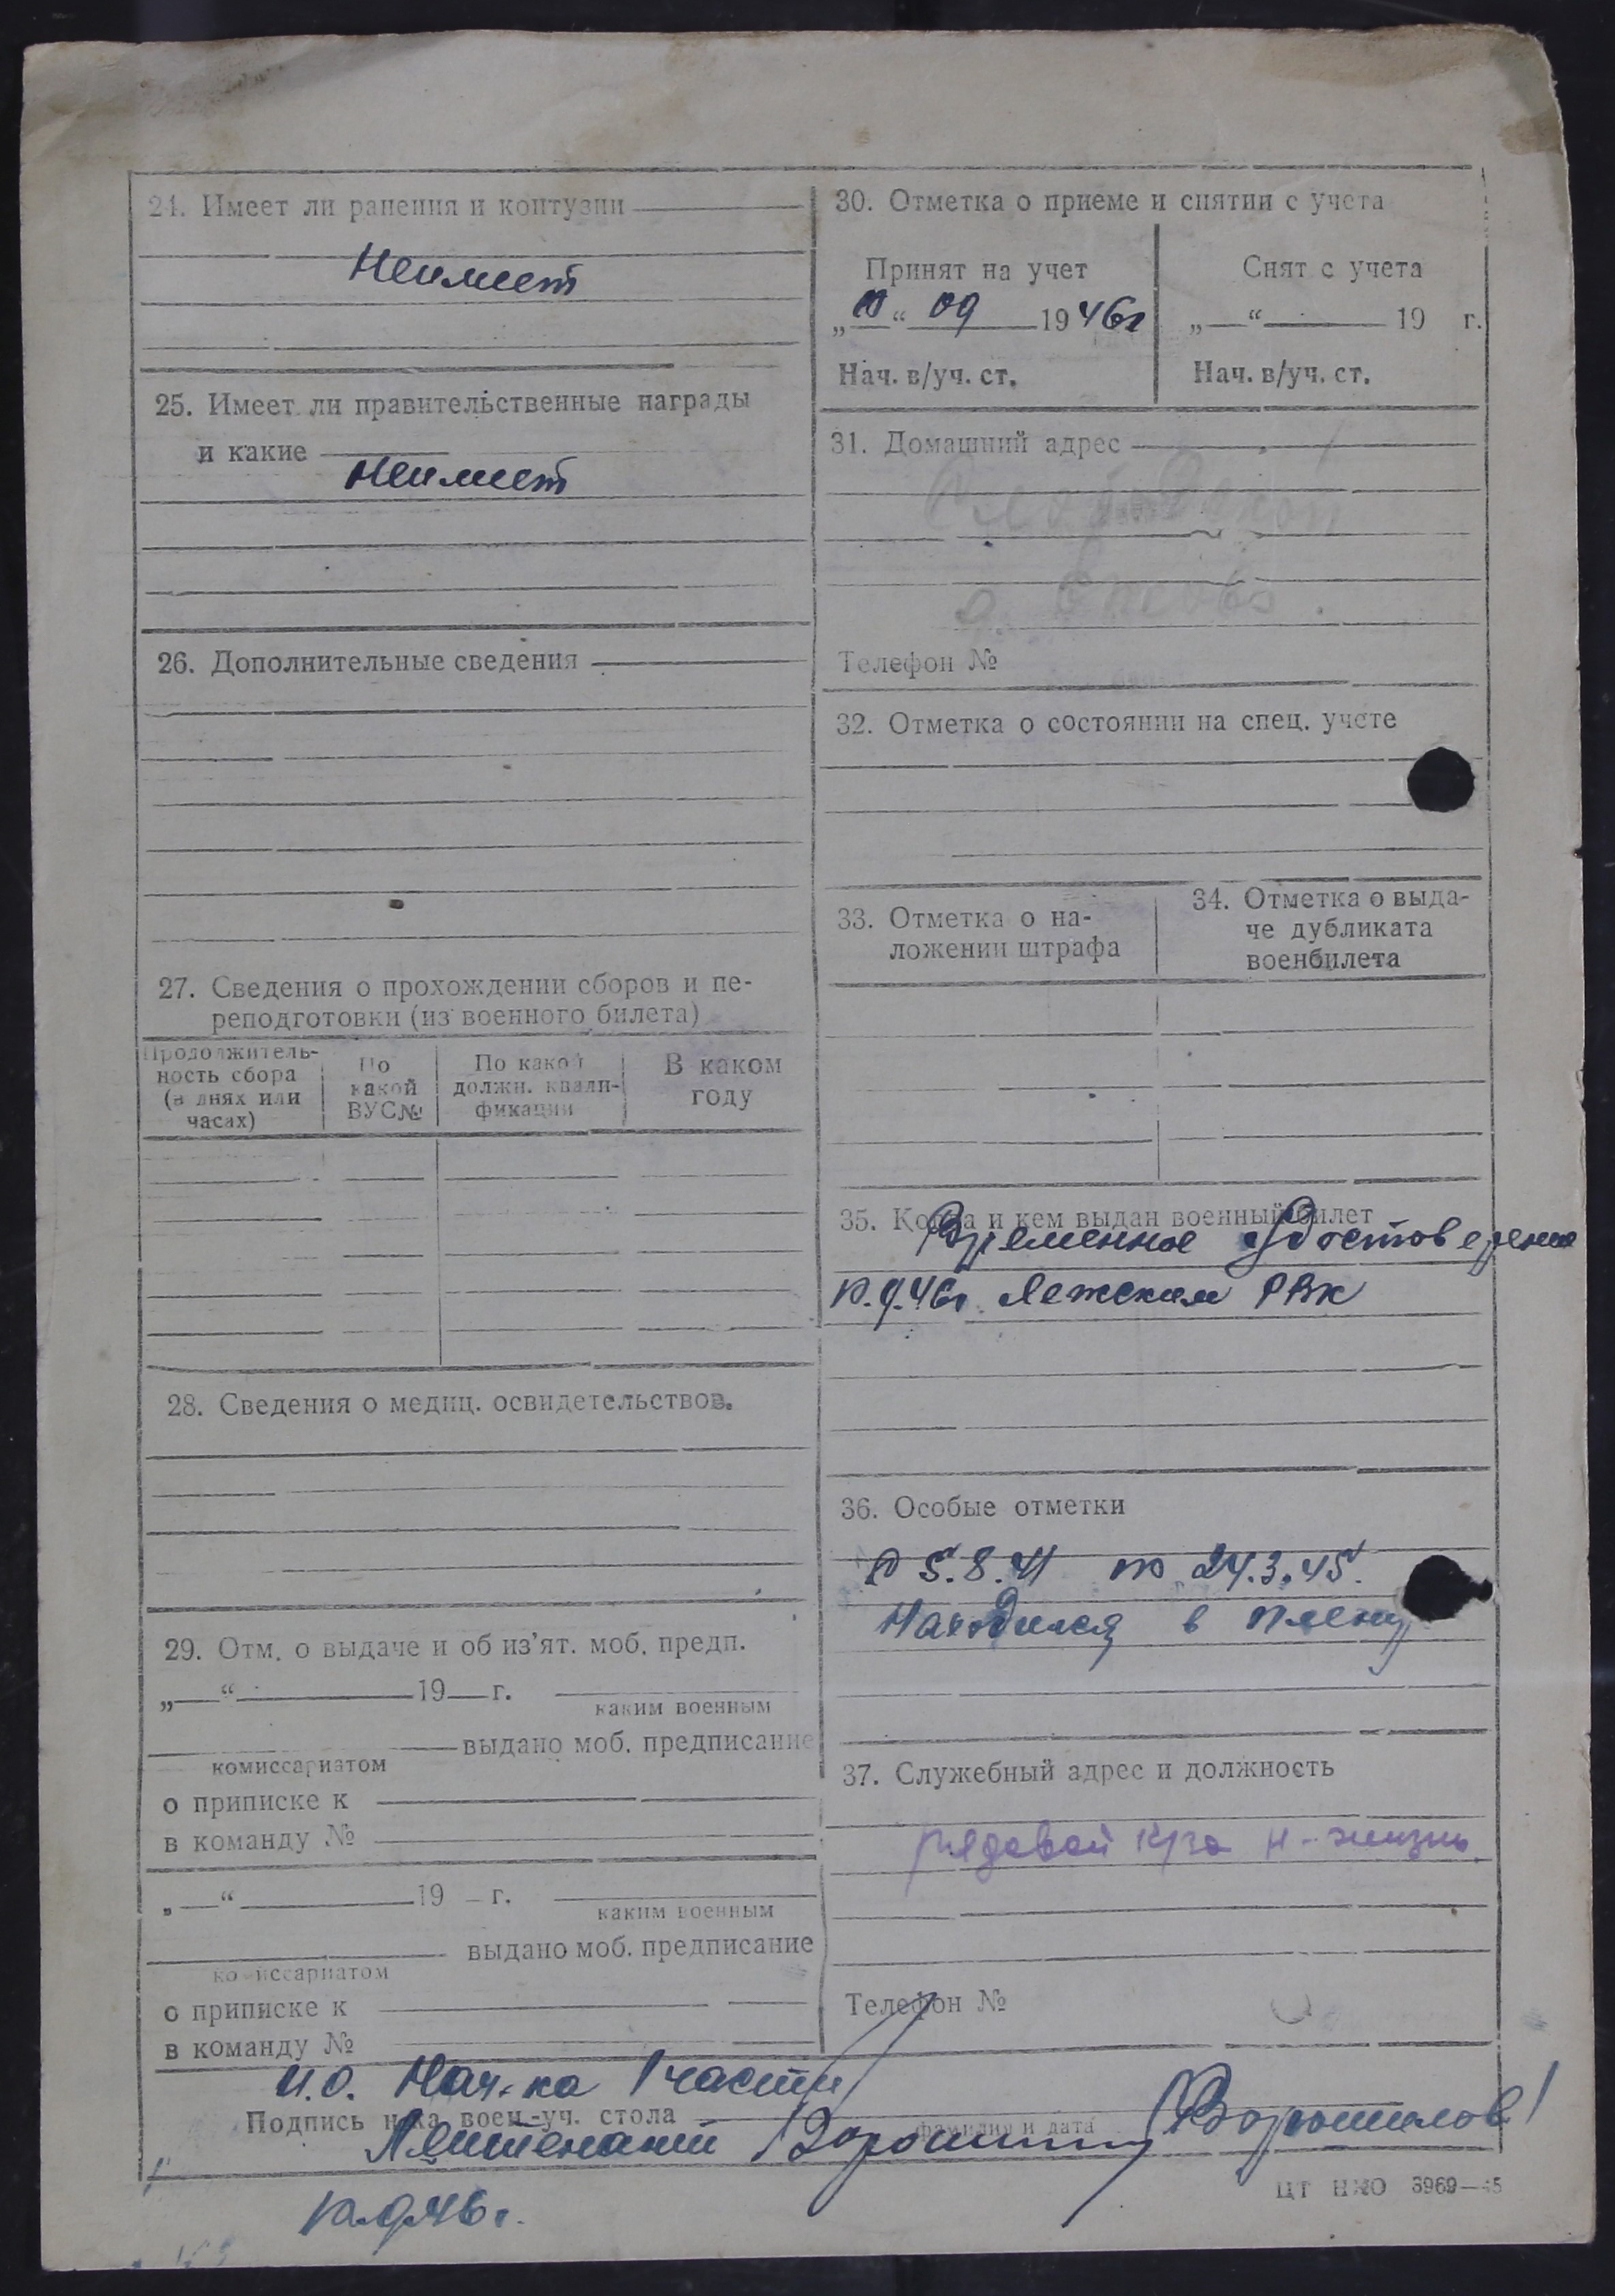 24. Имеет ли ранения и контузии
Неимеет
25. Имеет ли правительственные награды
и какие
Неимеет
26. Дополнительные сведения
27. Сведения о прохождении сборов и пе-
реподготовки (из военного билета)
Продолжитель-
ность сбора
(в днях или
часах)
По
какой
ВУС№
По какой
должн. квали-
фикации
В каком
году
28. Сведения о медиц. освидетельствов.
29. Отм. о выдаче и об из’ят. моб. предп.
„ “ 19 г.
каким военным
выдано моб. предписание
комиссариатом
о приписке к
в команду №
„ “ 19 г.
каким военным
выдано моб. предписание
комиссариатом
о приписке к
в команду №
30. Отметка о приеме и снятии с учета
Принят на учет
„10“ 09 1946г
Нач. в/уч. ст.
Снят с учета
„ “ 19 г.
Нач. в/уч. ст.
31. Домашний адрес
д.
Телефон №
32. Отметка о состоянии на спец. учете
33. Отметка о на-
ложении штрафа
34. Отметка о выда-
че дубликата
военбилета
35. Когда и кем выдан военный билет
Временное удостоверение
10.9.46г. Лежским РВК
36. Особые отметки
С 5.8.41 по 24.3.45.
Находился в плену
37. Служебный адрес и должность
рядовой к/за Н-жизнь.
Телефон №
И.О. Нач-ка 1 части
Подпись н-ка воен.-уч. стола
фамилия и дата
Лейтенант /Ворошилов/
10.9.46г.
ЦТ НКО 3969—45